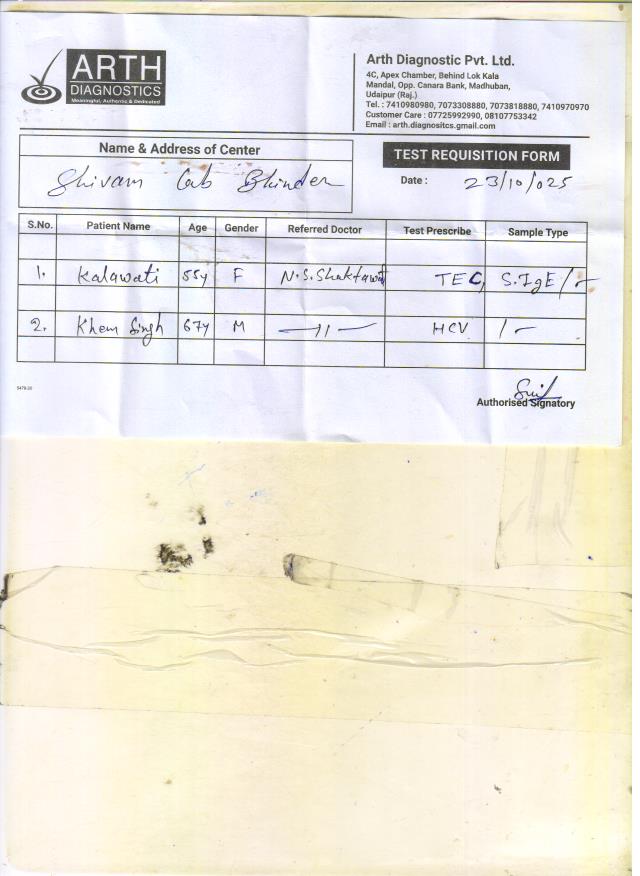 ARTH
DIAGNOSTICS
Meaningful, Authentic & Dedicated
Arth Diagnostic Pvt. Ltd.
4C, Apex Chamber, Behind Lok Kala
Mandal, Opp. Canara Bank, Madhuban,
Udaipur (Raj.)
Tel. : 7410980980, 7073308880, 7073818880, 7410970970
Customer Care : 07725992990, 08107753342
Email : arth.diagnositcs.gmail.com
Name & Address of Center
Shivam Lab Bhinder
TEST REQUISITION FORM
Date : 23/10/025
S.No. Patient Name Age Gender Referred Doctor Test Prescribe Sample Type
1. Kalawati 55y F N.S.Shaktawat TEC, S.IgE/-
2. Khem Singh 67y M —11— HCV /-
5479.20
Authorised Signatory